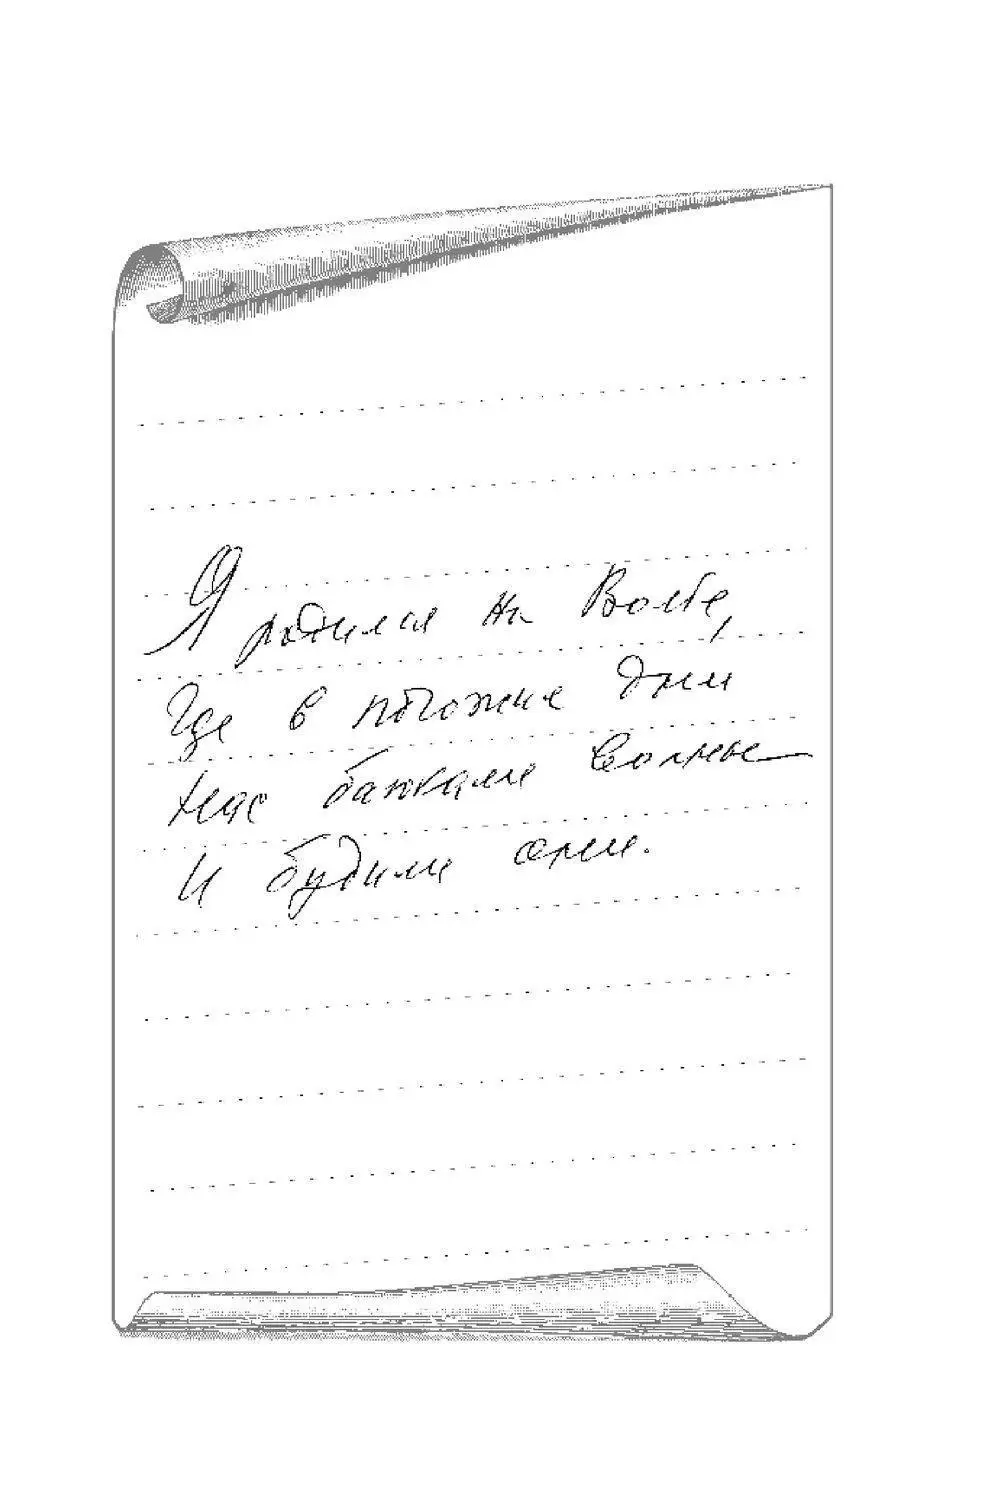 Я родился на Волге,
Где в погожие дни
Нас баюкали волны —
И будили они.